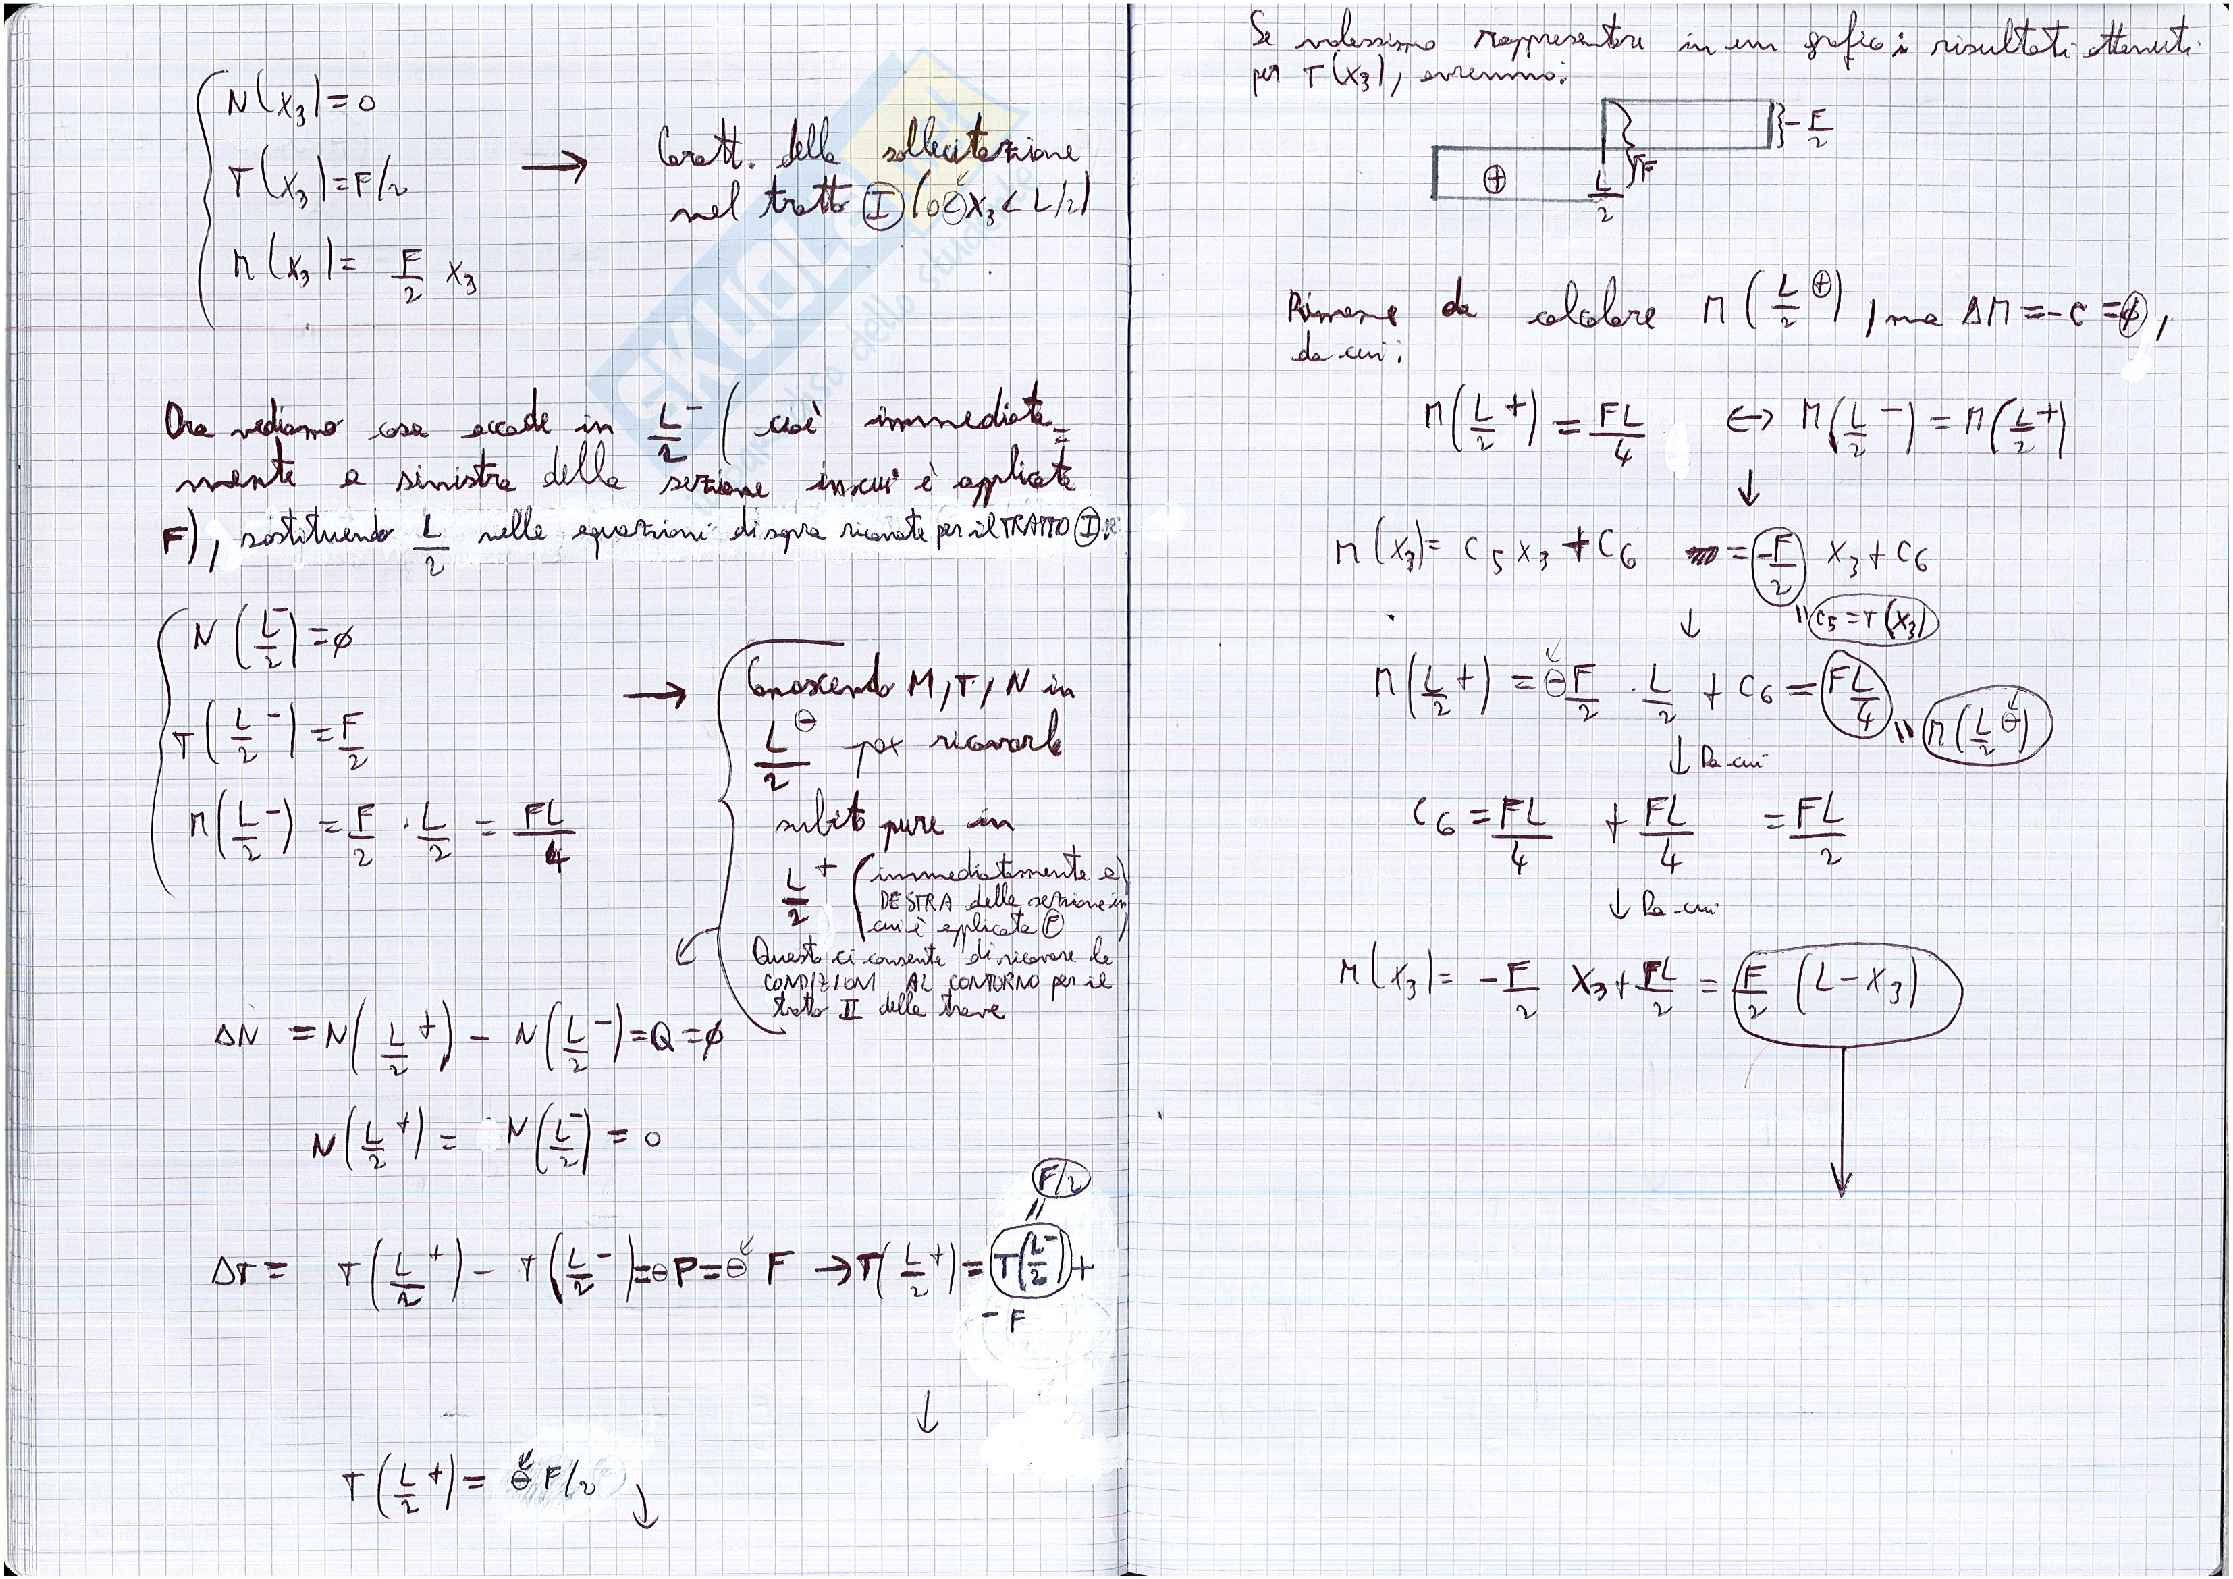 N(x₃)=0
T(x₃)=F/2
M(x₃)= F/2 x₃
→ Caratt. della sollecitazione
nel tratto I (0<x₃<L/2)
Ora vediamo cosa accade in L/2⁻ (cioè immediata=
mente a sinistra della sezione in cui è applicata
F), sostituendo L/2 nelle equazioni di sopra ricavate per il TRATTO I:
N(L/2⁻)=ϕ
T(L/2⁻)=F/2
M(L/2⁻)=F/2·L/2=FL/4
→ Conoscendo M,T,N in
L/2⊖ posso ricavarle
subito pure in
L/2⁺ (immediatamente a
DESTRA della sezione in
cui è applicata F)
Questo ci consente di ricavare le
CONDIZIONI AL CONTORNO per il
tratto II della trave
ΔN = N(L/2⁺) - N(L/2⁻)=Q=ϕ
N(L/2⁺)= N(L/2⁻)=0
F/2
ΔT= T(L/2⁺) - T(L/2⁻)=⊖P=⊖F → T(L/2⁺)=T(L/2⁻)+
-F
↓
T(L/2⁺)= ⊖F/2
Se volessimo rappresentare in un grafico i risultati ottenuti
per T(x₃), avremmo:
-F/2
⊕ L/2 F
Rimane da calcolare M(L/2⊕), ma ΔM=-C=ϕ,
da cui:
M(L/2⁺)=FL/4 ↔ M(L/2⁻)=M(L/2⁺)
↓
M(x₃)= C₅x₃+C₆ = -F/2 x₃+C₆
↓ " C₅=T(x₃)
M(L/2⁺)=⊖F/2·L/2+C₆=FL/4 " M(L/2⊖)
↓ Da cui
C₆=FL/4 + FL/4 =FL/2
↓ Da cui
M(x₃)= -F/2 x₃+FL/2=F/2 (L-x₃)